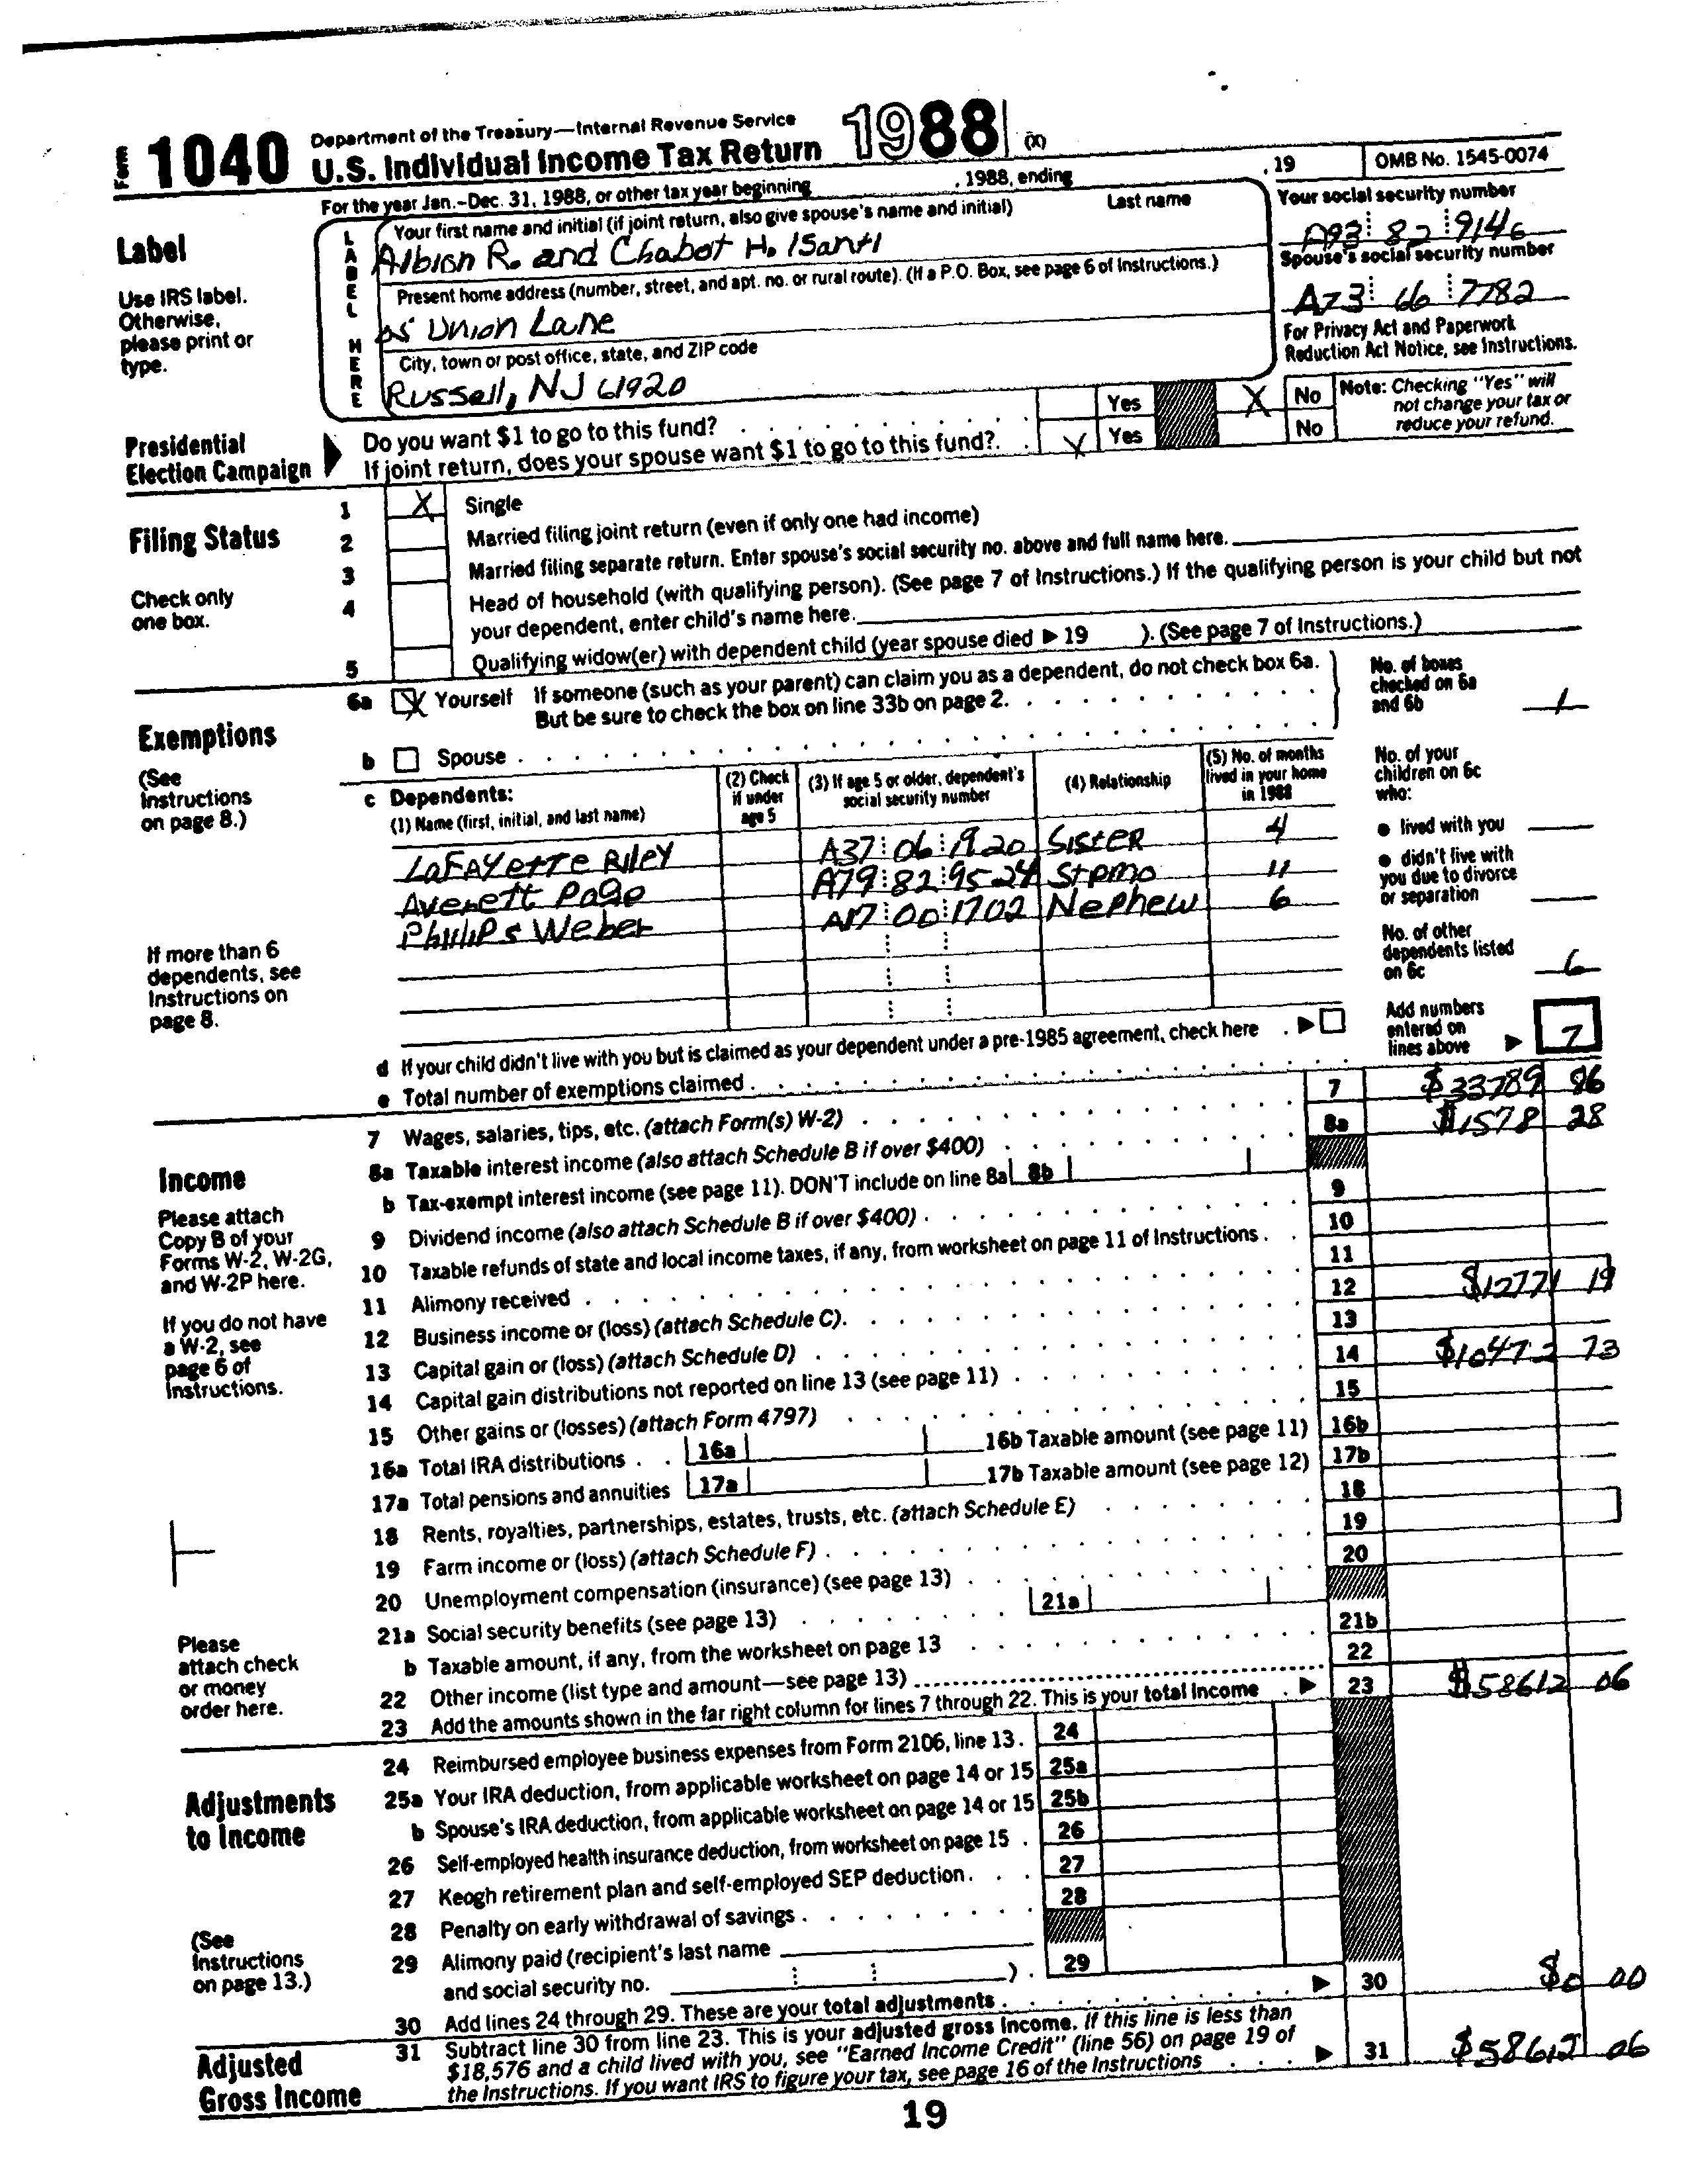 Form 1040 Department of the Treasury—Internal Revenue Service
U.S. Individual Income Tax Return 1988 (X)
For the year Jan.-Dec. 31, 1988, or other tax year beginning , 1988, ending , 19 OMB No. 1545-0074
Label
Use IRS label.
Otherwise,
please print or
type.
LABEL HERE
Your first name and initial (if joint return, also give spouse's name and initial) Last name
Albion R. and Chabot H. Isanti
Your social security number
A93 82 9146
Present home address (number, street, and apt. no. or rural route). (If a P.O. Box, see page 6 of Instructions.)
Spouse's social security number
A73 66 7782
Union Lane
City, town or post office, state, and ZIP code
Russell, NJ 61920
For Privacy Act and Paperwork
Reduction Act Notice, see Instructions.
Presidential
Election Campaign
Do you want $1 to go to this fund? Yes X No
If joint return, does your spouse want $1 to go to this fund? X Yes No
Note: Checking "Yes" will
not change your tax or
reduce your refund.
Filing Status
Check only
one box.
1 X Single
2 Married filing joint return (even if only one had income)
3 Married filing separate return. Enter spouse's social security no. above and full name here.
4 Head of household (with qualifying person). (See page 7 of Instructions.) If the qualifying person is your child but not
your dependent, enter child's name here.
5 Qualifying widow(er) with dependent child (year spouse died ▶ 19 ). (See page 7 of Instructions.)
Exemptions
(See
Instructions
on page 8.)
6a X Yourself If someone (such as your parent) can claim you as a dependent, do not check box 6a.
But be sure to check the box on line 33b on page 2.
b Spouse
No. of boxes
checked on 6a
and 6b 1
c Dependents:
(1) Name (first, initial, and last name)
(2) Check
if under
age 5
(3) If age 5 or older, dependent's
social security number
(4) Relationship
(5) No. of months
lived in your home
in 1988
LaFayette Riley A37 06 1920 Sister 4
Averett Page A79 82 9524 Stpmo 11
Philips Weber A17 00 1702 Nephew 6
If more than 6
dependents, see
Instructions on
page 8.
No. of your
children on 6c
who:
● lived with you
● didn't live with
you due to divorce
or separation
No. of other
dependents listed
on 6c 6
d If your child didn't live with you but is claimed as your dependent under a pre-1985 agreement, check here ▶
e Total number of exemptions claimed
Add numbers
entered on
lines above ▶ 7
Income
Please attach
Copy B of your
Forms W-2, W-2G,
and W-2P here.
If you do not have
a W-2, see
page 6 of
Instructions.
Please
attach check
or money
order here.
7 Wages, salaries, tips, etc. (attach Form(s) W-2) 7 $33789 86
8a Taxable interest income (also attach Schedule B if over $400) 8a $1578 28
b Tax-exempt interest income (see page 11). DON'T include on line 8a 8b
9 Dividend income (also attach Schedule B if over $400) 9
10 Taxable refunds of state and local income taxes, if any, from worksheet on page 11 of Instructions 10
11 Alimony received 11
12 Business income or (loss) (attach Schedule C) 12 $12771 19
13 Capital gain or (loss) (attach Schedule D) 13
14 Capital gain distributions not reported on line 13 (see page 11) 14 $10472 73
15 Other gains or (losses) (attach Form 4797) 15
16a Total IRA distributions 16a 16b Taxable amount (see page 11) 16b
17a Total pensions and annuities 17a 17b Taxable amount (see page 12) 17b
18 Rents, royalties, partnerships, estates, trusts, etc. (attach Schedule E) 18
19 Farm income or (loss) (attach Schedule F) 19
20 Unemployment compensation (insurance) (see page 13) 20
21a Social security benefits (see page 13) 21a
b Taxable amount, if any, from the worksheet on page 13 21b
22 Other income (list type and amount—see page 13) 22
23 Add the amounts shown in the far right column for lines 7 through 22. This is your total income ▶ 23 $58612 06
Adjustments
to Income
(See
Instructions
on page 13.)
24 Reimbursed employee business expenses from Form 2106, line 13. 24
25a Your IRA deduction, from applicable worksheet on page 14 or 15 25a
b Spouse's IRA deduction, from applicable worksheet on page 14 or 15 25b
26 Self-employed health insurance deduction, from worksheet on page 15 26
27 Keogh retirement plan and self-employed SEP deduction 27
28 Penalty on early withdrawal of savings 28
29 Alimony paid (recipient's last name
and social security no. ) 29
30 Add lines 24 through 29. These are your total adjustments ▶ 30 $0 00
Adjusted
Gross Income
31 Subtract line 30 from line 23. This is your adjusted gross income. If this line is less than
$18,576 and a child lived with you, see "Earned Income Credit" (line 56) on page 19 of
the Instructions. If you want IRS to figure your tax, see page 16 of the Instructions ▶ 31 $58612 06
19